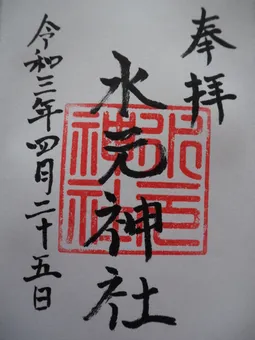 奉拝
水元神社
令和三年四月二十五日
水元神社